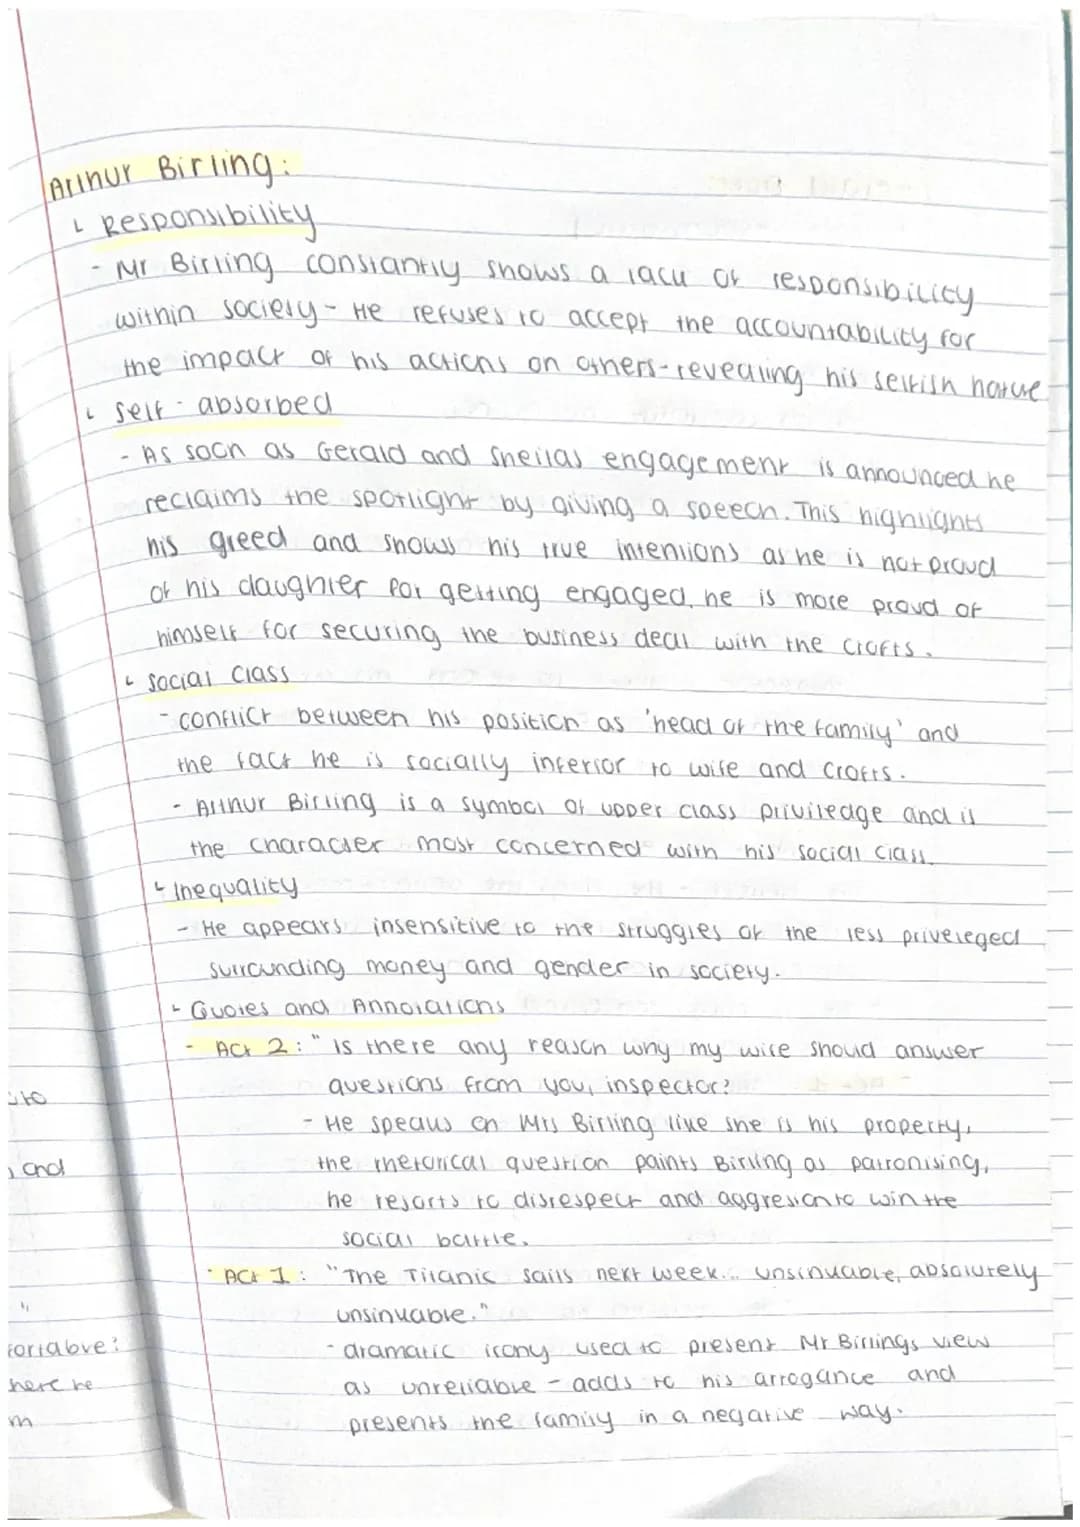 Arthur Birling:
↳ Responsibility
- Mr Birling constantly shows a lack of responsibility
within society - He refuses to accept the accountability for
the impact of his actions on others - revealing his selfish nature
↳ self - absorbed
- As soon as Gerald and Sheilas engagement is announced he
reclaims the spotlight by giving a speech. This highlights
his greed and shows his true intentions as he is not proud
of his daughter for getting engaged, he is more proud of
himself for securing the business deal with the Crofts.
↳ Social Class
- conflict between his position as 'head of the family' and
the fact he is socially inferior to wife and Crofts.
- Arthur Birling is a symbol of upper class priviledge and is
the character most concerned with his social class.
↳ Inequality
- He appears insensitive to the struggles of the less privereged
surrounding money and gender in society.
↳ Quotes and Annotations
- Act 2: "Is there any reason why my wife should answer
questions from you, inspector?
- He speaks on Mrs Birling like she is his property,
the rhetorical question paints Birling as patronising,
he resorts to disrespect and aggresion to win the
social battle.
- Act 1: "The Titanic sails next week... unsinkable, absolutely
unsinkable."
- dramatic irony used to present Mr Birlings view
as unreliable - adds to his arrogance and
presents the family in a negative way.
to
, and
"
here he
m